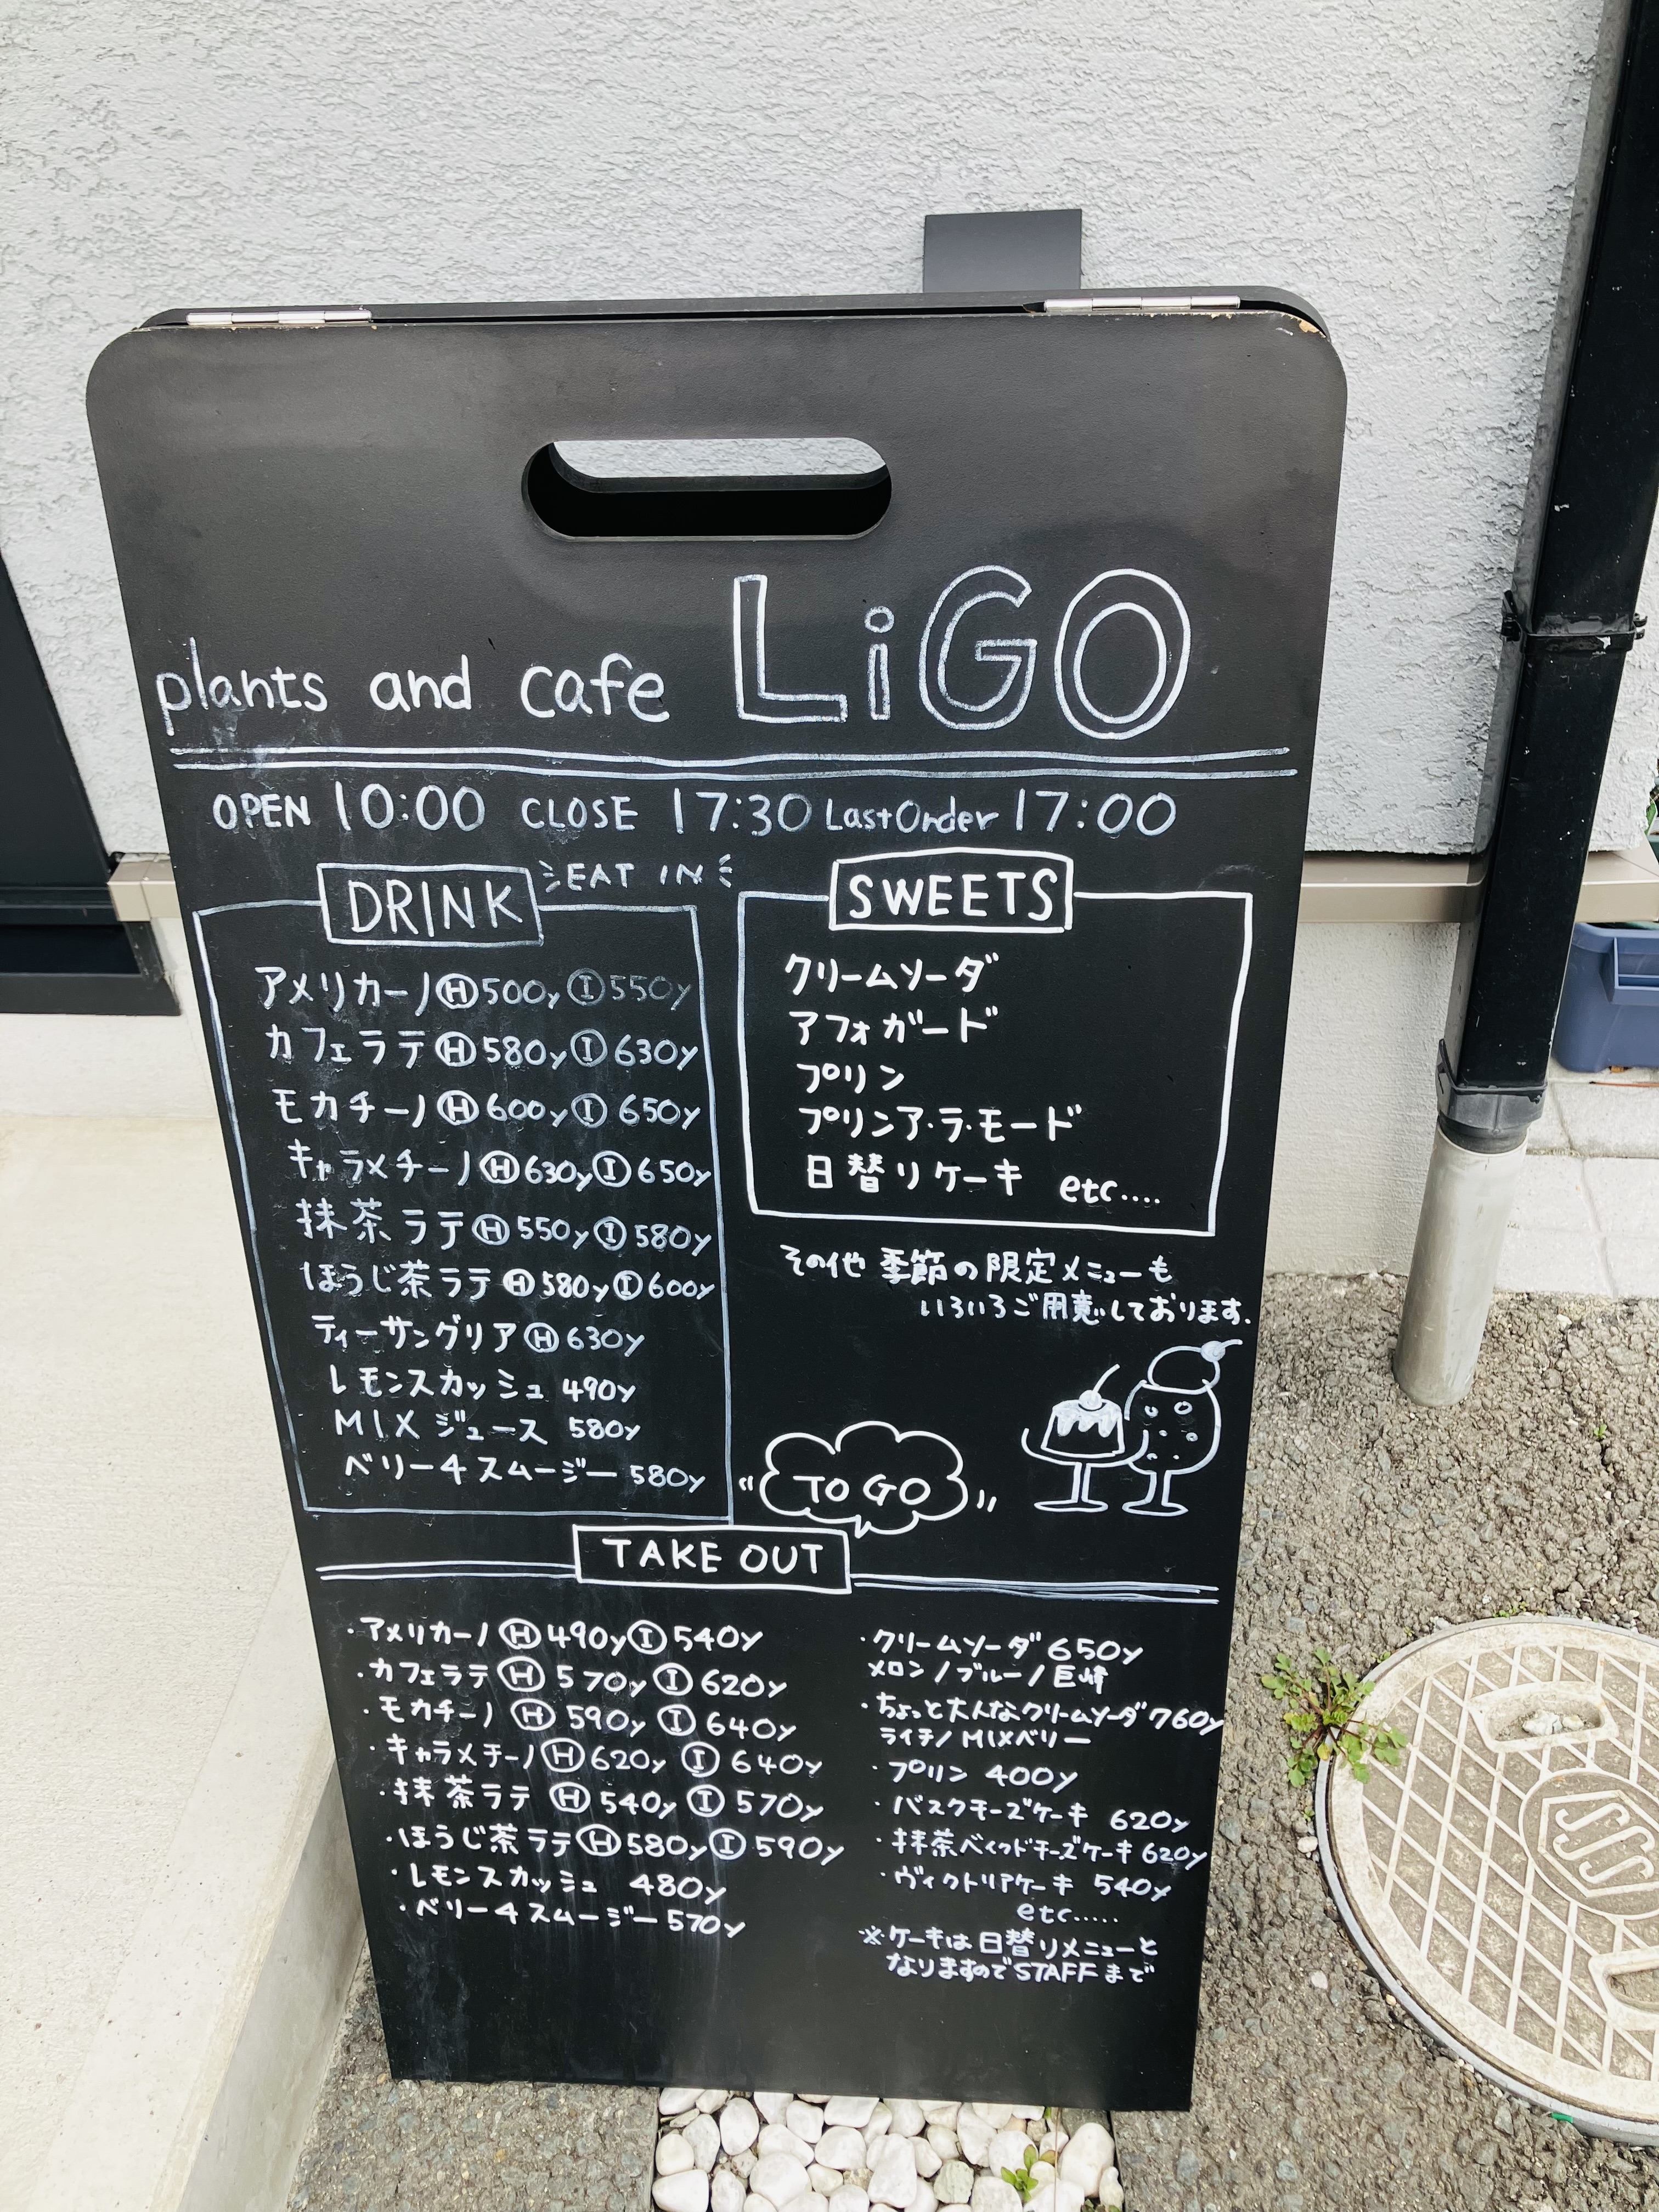 plants and cafe LiGO
OPEN 10:00 CLOSE 17:30 Last Order 17:00
DRINK EAT IN
アメリカーノ Ⓗ 500y Ⓘ 550y
カフェラテ Ⓗ 580y Ⓘ 630y
モカチーノ Ⓗ 600y Ⓘ 650y
キャラメチーノ Ⓗ 630y Ⓘ 650y
抹茶ラテ Ⓗ 550y Ⓘ 580y
ほうじ茶ラテ Ⓗ 580y Ⓘ 600y
ティーサングリア Ⓗ 630y
レモンスカッシュ 490y
MIXジュース 580y
ベリー4スムージー 580y
SWEETS
クリームソーダ
アフォガード
プリン
プリンア・ラ・モード
日替りケーキ etc....
その他 季節の限定メニューも
いろいろご用意しております.
TO GO
TAKE OUT
・アメリカーノ Ⓗ 490y Ⓘ 540y
・カフェラテ Ⓗ 570y Ⓘ 620y
・モカチーノ Ⓗ 590y Ⓘ 640y
・キャラメチーノ Ⓗ 620y Ⓘ 640y
・抹茶ラテ Ⓗ 540y Ⓘ 570y
・ほうじ茶ラテ Ⓗ 580y Ⓘ 590y
・レモンスカッシュ 480y
・ベリー4スムージー 570y
・クリームソーダ 650y
メロン/ブルー/巨峰
・ちょっと大人なクリームソーダ 760y
ライチ/MIXベリー
・プリン 400y
・バスクチーズケーキ 620y
・抹茶ベイクドチーズケーキ 620y
・ヴィクトリアケーキ 540y
etc.....
※ケーキは日替りメニューと
なりますのでSTAFFまで
SSS